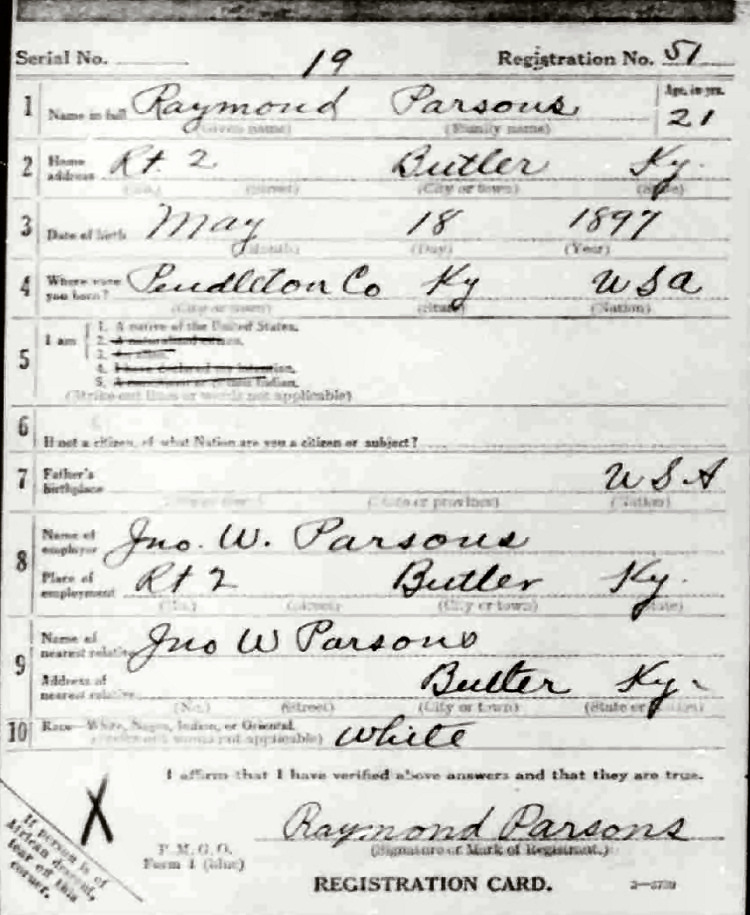 Serial No. 19 Registration No. 51
1 Name in full Raymond Parsons Age, in yrs. 21
(Given name) (Family name)
2 Home address Rt. 2 Butler Ky.
(No.) (Street) (City or town) (State)
3 Date of birth May 18 1897
(Month) (Day) (Year)
4 Where were you born? Pendleton Co Ky USA
(City or town) (State) (Nation)
5 I am
1. A native of the United States.
2. A naturalized citizen.
3. An alien.
4. I have declared my intention.
5. A noncitizen or citizen Indian.
(Strike out lines or words not applicable)
6 If not a citizen, of what Nation are you a citizen or subject?
7 Father's birthplace USA
(City or town) (State or province) (Nation)
8 Name of employer Jno. W. Parsons
Place of employment Rt 2 Butler Ky.
(No.) (Street) (City or town) (State)
9 Name of nearest relative Jno W Parsons
Address of nearest relative Butler Ky.
(No.) (Street) (City or town) (State or Nation)
10 Race—White, Negro, Indian, or Oriental. White
(Strike out words not applicable)
I affirm that I have verified above answers and that they are true.
X
If person is of
African descent,
tear off this
corner.
Raymond Parsons
P. M. G. O.
Form 1 (blue)
(Signature or Mark of Registrant.)
REGISTRATION CARD.